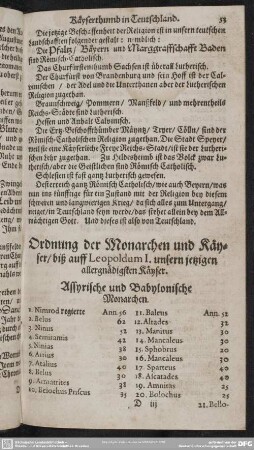 Käyserthumb in Teutschland. 53
Die jetzige Beschaffenheit der Religion ist in unsern teutschen
Landschafften folgender gestalt: nemblich:
Die Pfaltz/ Bäyern und Marggraffschafft Baden
sind Römisch-Catholisch.
Das Churfürstenthumb Sachsen ist überall lutherisch.
Der Churfürst von Brandenburg und sein Hoff ist der Cal-
vinischen/ der Adel und die Unterthanen aber der lutherischen
Religion zugethan.
Braunschweig/ Pommern/ Manßfeld/ und mehrentheils
Reichs-Städte sind lutherisch.
Hessen und Anhelt Calvinisch.
Die Ertz-Geschoffthümer Mäyntz/ Tryer/ Cölln/ sind der
Römisch-Catholischen Religion zugethan. Die Stadt Speyer/
weil sie eine Käyserliche Freye Reichs-Stadt/ ist sie der lutheri-
schen Lehr zugethan. Zu Hildesheimb ist das Volck zwar lu-
therisch/ aber die Geistlichen sind Römisch Catholisch.
Schlesien ist fast gantz lutherisch gewesen.
Oesterreich gantz Römisch Catholisch/ wie auch Beyern/ was
nun ins künfftige für ein Zustand mit der Religion bey diesem
schweren und langwierigen Krieg/ da sich alles zum Untergang/
neiget/ in Teutschland seyn werde/ das stehet allein bey dem All-
mächtigen Gott. Und dieses ist also von Teutschland.
Ordnung der Monarchen und Käy-
ser/ biß auff Leopoldum I. unsern jetzigen
allergnädigsten Käyser.
Assyrische und Babylonische
Monarchen.
1. Nimrod regierte Ann. 56
1. Belus 62
2. Ninus 52
4. Semiramis 42
5. Ninias 38
6. Arius 30
7. Aralius 40
8. 30
9. Armatrites 38
10. Belochus Priscus 35
11. Baleus Ann. 52
12. Altades 32
13. Mamitus 30
14. Mancaleus 30
15. Sphobrus 20
16. Mancaleus 30
17. Sparteus 40
18. Alcatades 40
19. Amnites 25
20. Belochus 25
D iij 21. Bello-